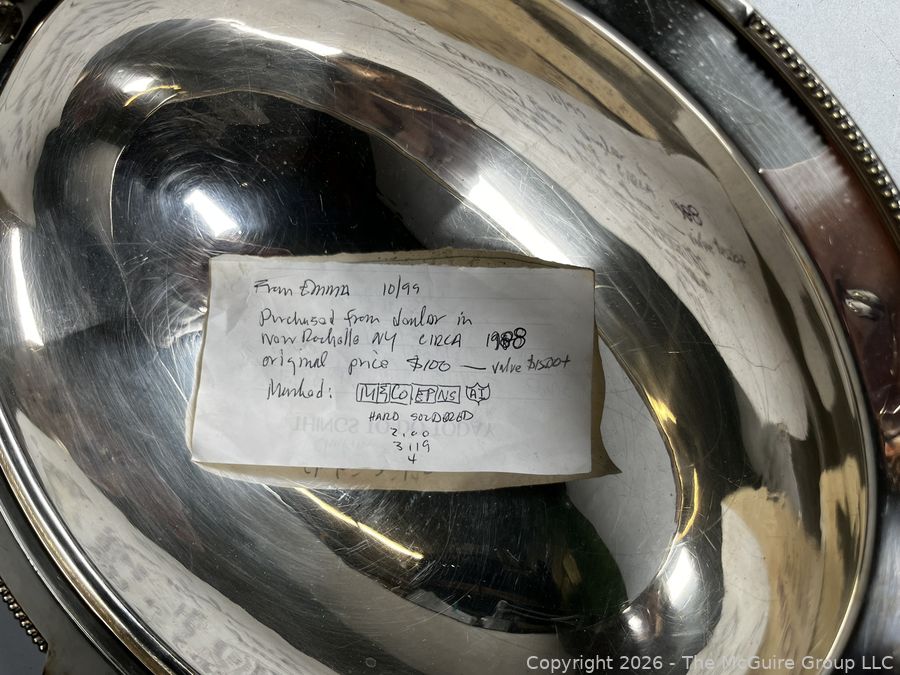 From Emma 10/99
Purchased from dealer in
New Rochelle NY CIRCA 1988
original price $100 — value $1500+
Marked: M & Co EP NS A1
HARD SOLDERED
2.00
3119
4
THINGS TO DO TODAY
Copyright © 2026 - The McGuire Group LLC